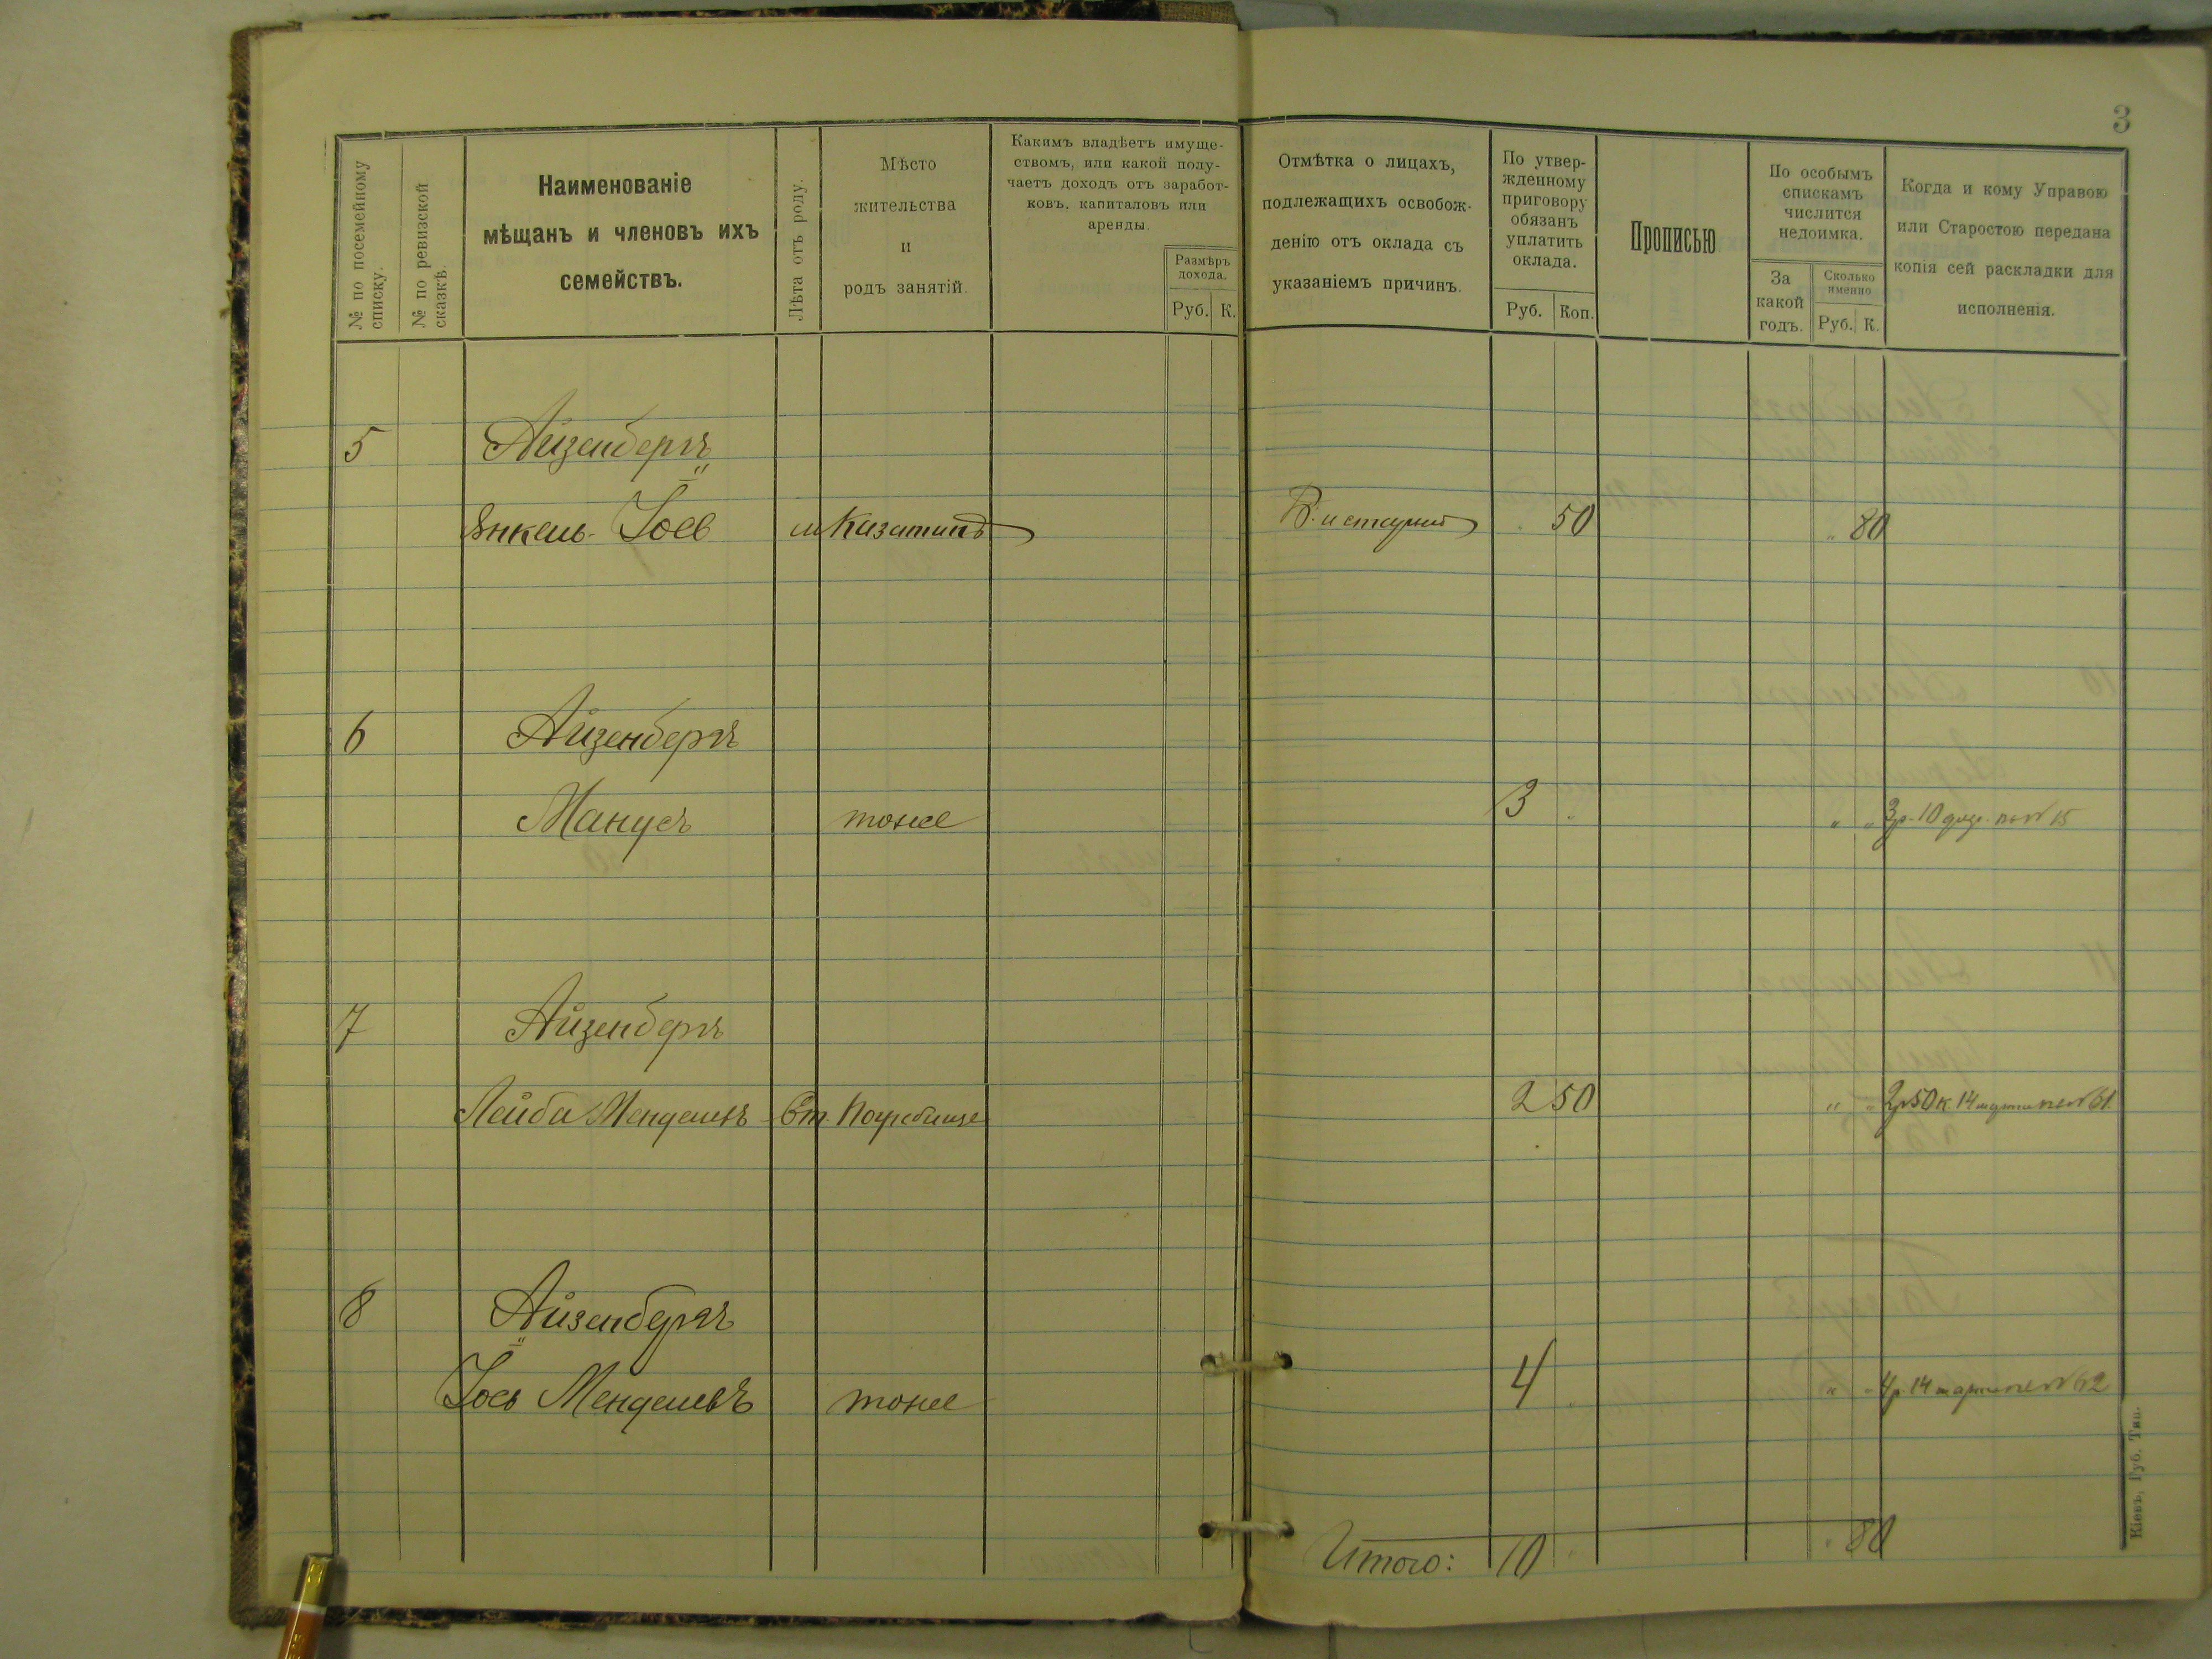 3
№ по посемейному
списку.
№ по ревизской
сказкѣ.
Наименованіе
мѣщанъ и членовъ ихъ
семействъ.
Лѣта отъ роду.
Мѣсто
жительства
и
родъ занятій.
Какимъ владѣетъ имуще-
ствомъ, или какой полу-
чаетъ доходъ отъ заработ-
ковъ, капиталовъ или
аренды.
Размѣръ
дохода.
Руб. К.
Отмѣтка о лицахъ,
подлежащихъ освобож-
денію отъ оклада съ
указаніемъ причинъ.
По утвер-
жденному
приговору
обязанъ
уплатить
оклада.
Руб. Коп.
Прописью
По особымъ
спискамъ
числится
недоимка.
За
какой
годъ.
Сколько
именно
Руб. К.
Когда и кому Управою
или Старостою передана
копія сей раскладки для
исполненія.
5 Айзенбергъ
Янкель-Іосв м Казатинъ 50 " 80
6 Айзенбергъ
Манусъ тоже 3 " " " 3р. 10 по № 15
7 Айзенбергъ
Лейба Менделевъ Ст. Погребище 2 50 " " 2р 50 к. 14 марта по № 61.
8 Айзенбергъ
Іось Менделевъ тоже 4 " " " 4р. 14 марта по № 62
Итого: 10 " " 80
Кіевъ, Губ. Тип.